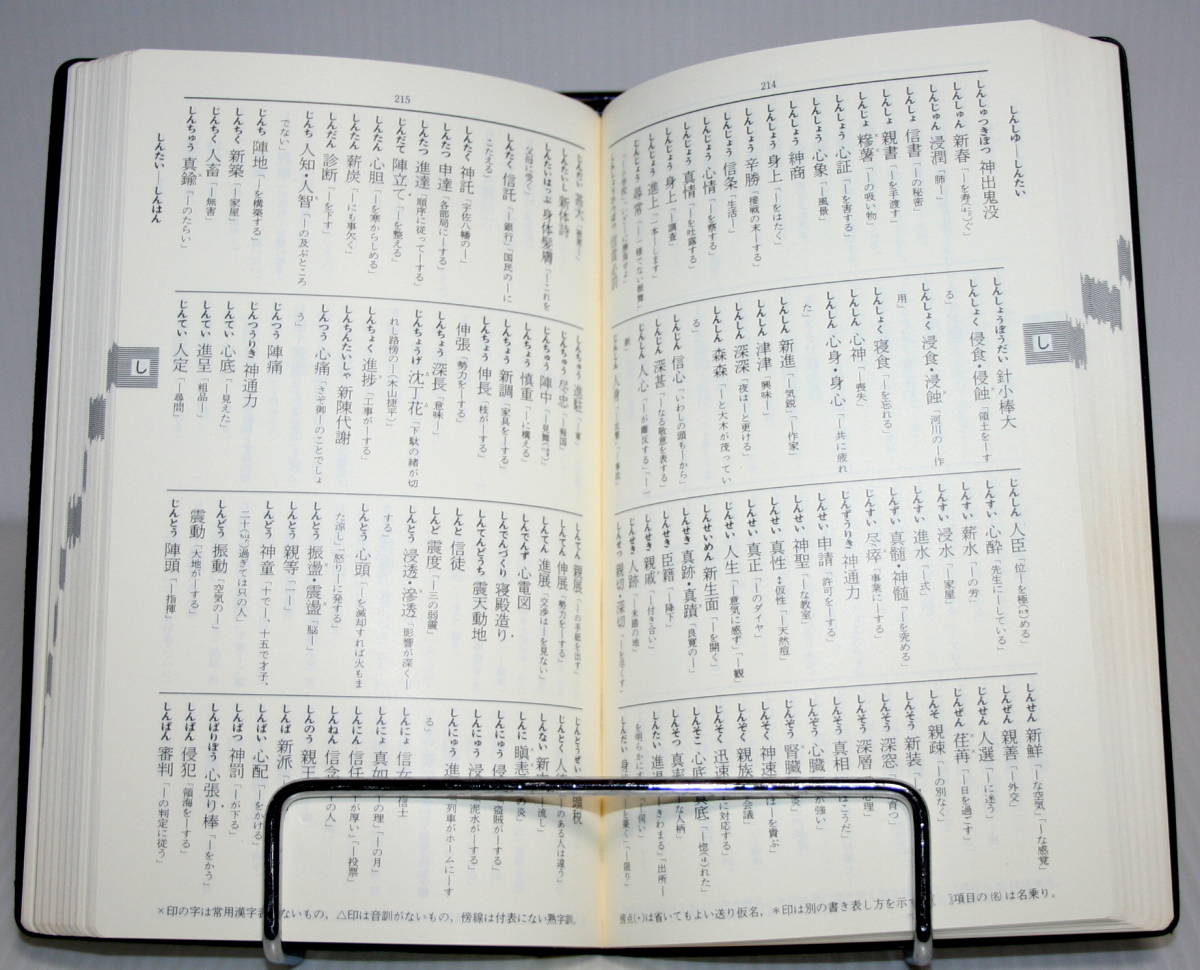 214
しんしゅ――しんたい
しんしゅつきぼつ 神出鬼没
しんしゅん 新春「―を寿(ことほ)ぐ」
しんじゅん 浸潤「肺―」
しんしょ 信書「―の秘密」
しんしょ 親書「―を手渡す」
じんしょ 糝薯「―の吸い物」
しんしょう 心証「―を害する」
しんしょう 心象「―風景」
しんしょう 紳商
しんしょう 身上「―をはたく」
しんしょう 辛勝「接戦の末―する」
しんじょう 信条「生活―」
しんじょう 心情「―を察する」
しんじょう 真情「―を吐露する」
しんじょう 身上「―調査」
しんじょう 進上「一本―します」
じんじょう 尋常「―一様でない振舞」
しんしょうぼうだい 針小棒大
しんしょく 侵食・侵蝕「領土を―す
る」
しんしょく 浸食・浸蝕「河川の―作
用」
しんしょく 寝食「―を忘れる」
しんしん 心神「―喪失」
しんしん 心身・身心「―共に疲れ
た」
しんしん 新進「―気鋭」「―作家」
しんしん 津津「興味―」
しんしん 深深「夜は―と更ける」
しんしん 森森「―と大木が茂ってい
る」
しんじん 信心「いわしの頭も―から」
しんじん 深甚「―なる敬意を表する」
じんしん 人心「―が離反する」「―一
じんしん 人臣「位―を極(きわ)める」
しんすい 心酔「先生に―している」
しんすい 薪水「―の労」
しんすい 浸水「―家屋」
しんすい 進水「―式」
しんずい 真髄・神髄「―を究める」
じんすい 尽瘁「事業に―する」
じんずうりき 神通力
しんせい 申請「許可を―する」
しんせい 神聖「―な教室」
しんせい 真性↔仮性「―天然痘」
しんせい 真正「―のダイヤ」
じんせい 人生「―意気に感ず」「―観」
しんせいめん 新生面「―を開く」
しんせき 真跡・真蹟「良寛の―」
しんせき 臣籍「―降下」
しんせき 親戚「―付き合い」
じんせき 人跡「―未踏の地」
しんせつ 親切・深切「―を尽くす」
しんせん 新鮮「―な空気」「―な感覚」
しんぜん 親善「―外交」
じんせん 人選「―に迷う」
じんぜん 荏苒「―日を過ごす」
しんそ 親疎「―の別なく」
しんそう 新装
しんそう 深窓
しんそう 深層
しんそう 真相
しんぞう 心臓
じんぞう 腎臓
しんぞく 親族
じんそく 迅速
しんそこ 心底
しんたい 進退
傍点(・)は省いてもよい送り仮名,＊印は別の書き表し方を示す
項目の(名)は名乗り。
し
215
じんだい 甚大「被害―」
しんたいし 新体詩
しんたいはっぷ 身体髪膚「―これを
父母に受く」
しんたく 信託「―銀行」「国民の―に
こたえる」
しんたく 神託「宇佐八幡の―」
しんたつ 申達「各部局に―する」
しんたつ 進達「順序に従って―する」
じんだて 陣立て「―を整える」
しんたん 心胆「―を寒からしめる」
しんたん 薪炭「―にも事欠く」
しんだん 診断「―を下す」
じんち 人知・人智「―の及ぶところ
でない」
じんち 陣地「―を構築する」
しんちく 新築「―家屋」
じんちく 人畜「―無害」
しんちゅう 真鍮「―のたらい」
しんたい――しんはん
しんちゅう 進駐「―軍」
じんちゅう 尽忠「―報国」
じんちゅう 陣中「―見舞(みまい)」
しんちょう 慎重「―に構える」
しんちょう 新調「家具を―する」
しんちょう 伸長「枝が―する」
伸張「勢力を―する」
しんちょう 深長「意味―」
じんちょうげ 沈丁花「下駄の緒が切
れし路傍の―(木山捷平)」
しんちょく 進捗「工事が―する」
しんちんたいしゃ 新陳代謝
しんつう 心痛「さぞ御―のことでしょ
う」
じんつう 陣痛
じんつうりき 神通力
しんてい 心底「―見えた」
しんてい 進呈「粗品―」
じんてい 人定「―尋問」
しんてん 親展「―の手紙を出す」
しんてん 伸展「勢力を―する」
しんてん 進展「交渉は―を見ない」
しんでんず 心電図
しんでんづくり 寝殿造り
しんてんどうち 震天動地
しんと 信徒
しんど 震度「―三の弱震」
しんとう 浸透・滲透「影響が深く―
する」
しんとう 心頭「―を滅却すれば火もま
た涼し」「怒り―に発する」
しんとう 振盪・震盪「脳―」
しんとう 親等「一―」
しんどう 神童「十で―、十五で才子、
二十過ぎては只の人」
しんどう 振動「空気の―」
震動「大地が―する」
じんとう 陣頭「―指揮」
しんにゅう 進
る」
しんにょ 信女
しんにょ 真如「―の月」
しんにん 信任「―投票」
しんねん 信念
しんのう 親王
しんぱ 新派
しんぱい 心配「―をかける」
しんばつ 神罰「―が下る」
しんばりぼう 心張り棒「―をかう」
しんぱん 侵犯「領海を―する」
しんぱん 審判「―の判定に従う」
×印の字は常用漢字表
ないもの,△印は音訓がないもの,傍線は付表にない熟字訓.
し